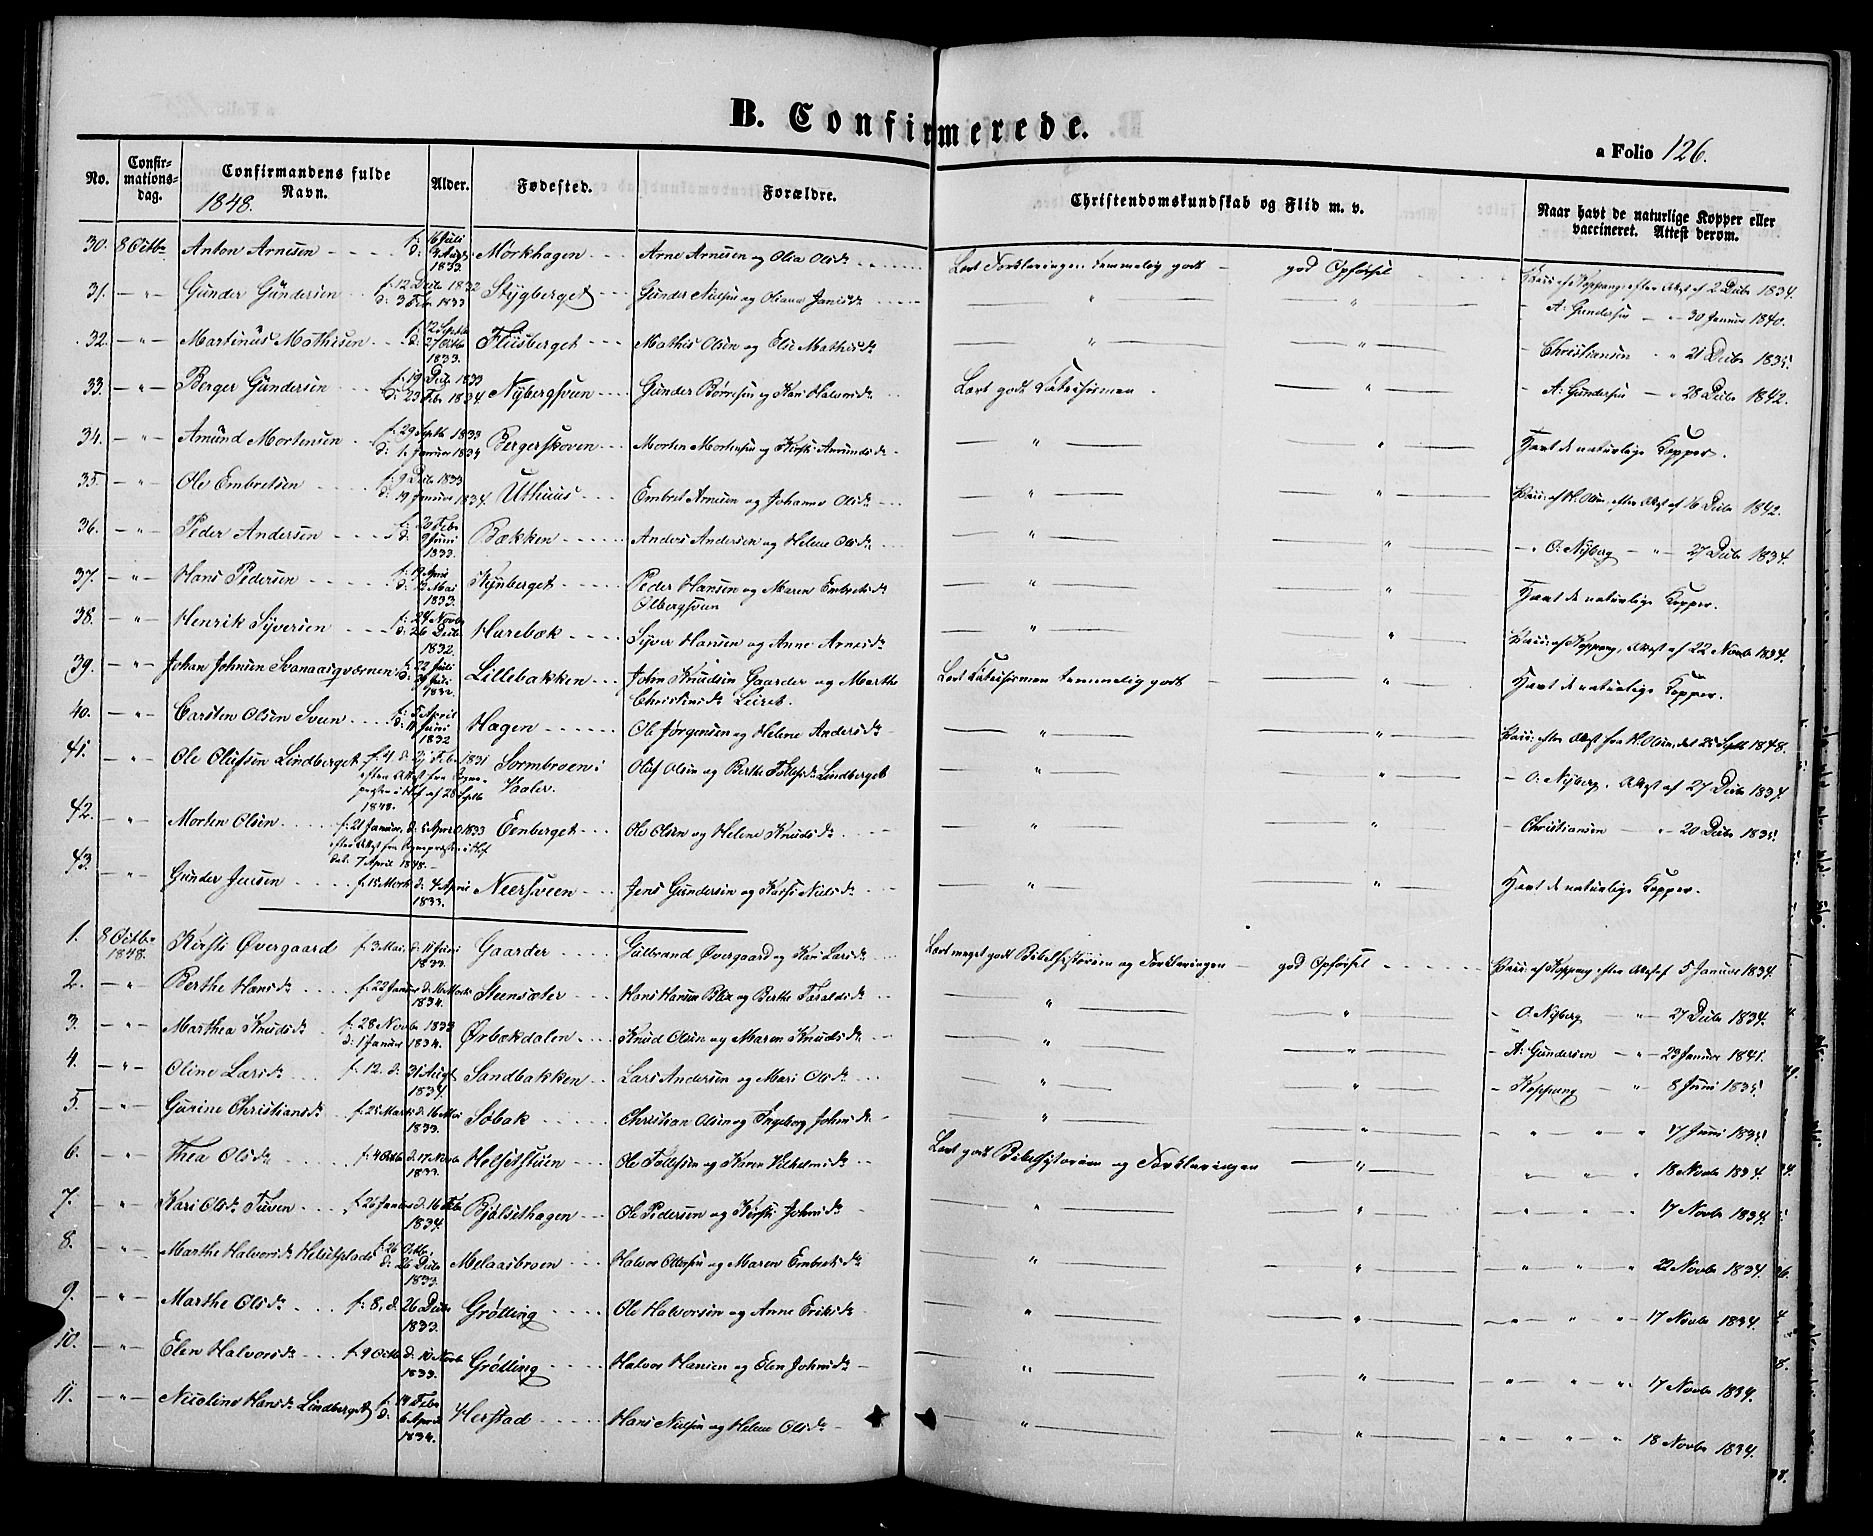 B. Confirmerede.
a Folio 126.
No. Confirmations-dag. Confirmandens fulde Navn. Alder. Fødested. Forældre. Christendomskundskab og Flid m. v. Naar havt de naturlige Kopper eller vaccineret. Attest derom.
1848.
30. 8 Octbr Anton Arnesen f: 16 Juli d: Augt 1833 Mørkhagen Arne Arnesen og Olea Olsdr Lært Forklaringen temmelig godt god Opførsel Vacc: af Koppang, efter Attest af 2 Decbr 1834.
31. — " — Gunder Gundersen f: 12 Decbr 1832 d: 3 Febr 1833 Stygberget Gunder Nielsen og Oliana " " — A: Gundersen — " 30 Januar 1840.
32. — " — Martinus Mathisen f: 12 Septbr d: 27 Octbr 1833. Fluisberget Mathis Olsen og Elie Mathisdr " " — Christiansen — " 21 Decbr 1835.
33. — " — Berger Gundersen f: 19 Decbr 1833 d: 23 Febr 1834. Nybergsveen Gunder Børresen og Kari Halvorsdr Lært godt Katechismen " — A: Gundersen — " 28 Decbr 1842.
34. — " — Amund Mortensen f: 29 Septbr 1833 d: 1 Januar 1834 Bergerskoven Morten Mortensen og Kirsti Amundsdr " " Havt de naturlige Kopper.
35. — " — Ole Embretsen f: 9 Decbr 1833 d: 19 Januar 1834. Uthuus Embret Arnesen og Johanne Olsdr " " Vacc: af H. Olsen, efter Attest af 16 Decbr 1842.
36. — " — Peder Andersen f: 20 Febr d: 9 Juni 1833. Bækken Anders Andersen og Helene Olsdr " " — " O: Nyberg — " — 27 Decbr 1834.
37. — " — Hans Pedersen f: 19 April d: 12 Mai 1833. Kynberget Peder Hansen og Maren Embretsdr Olbergsveen " " Havt de naturlige Kopper.
38. — " — Henrik Syversen f: 24 Novbr d: 26 Decbr 1832. Harebæk Syver Hansen og Anne Arnesdr " " Vacc: af Koppang, Attest af 22 Novbr 1834.
39. — " — Johan Johnsen f: 22 Juli d: 29 Juli 1832. Lillebakken John Knudsen Gaarder og Marthe Christensdr Leiret. Lært Katechismen temmelig godt " Havt de naturlige Kopper.
40. — " — Carsten Olsen Sveen f: 5 April d: 11 Juni 1832 Hagen Ole Jørgensen og Helene Andersdr " " Vacc: efter Attest fra H. Olsen, det 25 Septbr 1848.
41. — " — Ole Olufsen Lindberget f. 4 d. 27 Febr 1831 efter Attest fra Sogne-præsten i Hof af 28 Septbr 1848. Sormbroen i Vaaler. Oluf Olsen og Berthe Tollefsdr Lindberget " " — O: Nyberg, Attest af 27 Decbr 1834.
42. — " — Morten Olsen f: 21 Januar, d: 5 April 1833 efter Attest fra Sognepræsten i Hof dat. 7 April 1848. Eenberget Ole Olsen og Helene Knudsdr " " — Christiansen — " — 20 Decbr 1835.
43. — " — Gunder Jensen f. 15 Marts d: 4 April 1833. Neersveen Jens Gundersen og Kirsti Nielsdr " " Havt de naturlige Kopper.
1. 8 Octbr 1848. Kirsti Øvergaard f: 3 Mai, d: 11 Juni 1833. Gaarder Gulbrand Øvergaard og Kari Larsdr Lært meget godt Bibelhistorien og Forklaringen god Opførsel Vacc: af Koppang efter Attest af 5 Januar 1834.
2. — " — Berthe Hansdr f: 22 Januar d: 16 Marts 1834. Steensæter Hans Hansen Blix og Berthe Taraldsdr " " — O. Nyberg — " — 27 Decbr 1834.
3. — " — Marthea Knudsdr f: 28 Novbr 1833 d: 1 Januar 1834. Ørbækdalen Knud Olsen og Maren Knudsdr " " — A: Gundersen — " — 23 Januar 1841.
4. — " — Oline Larsdr f. 12. d. 31 Augt 1834. Sandbakken Lars Andersen og Mari Olsdr " " — Koppang — " 8 Juni 1835.
5. — " — Gurine Christiansdr f. 25 Marts d: 16 Mai 1833. Søbak Christian Olsen og Ingeborg Johnsdr " " — " " " 17 Juni 1835.
6. — " — Thea Olsdr f. 4 Octbr d. 17 Novbr 1833. Helsetstuen Ole Tollefsen og Karen Vilhelmsdr Lært godt Bibelhistorien og Forklaringen " " " " 18 Novbr 1834.
7. — " — Kari Olsdr Tuven f. 26 Januar d: 16 Febr 1834. Bjølsethagen Ole Pedersen og Kirsti Johnsdr " " " " " 17 Novbr 1834.
8. — " — Marthe Halvorsdr f: 26 Octbr. d: 26 Decbr 1833. Melaasbroen Halvor Ottersen og Maren Embretsdr " " — " " " 22 Novbr 1834.
9. — " — Marthe Olsdr f: 8, d. 26 Decbr 1833. Grølling Ole Halvorsen og Anne Eriksdr " " — " " " 17 Novbr 1834.
10. — " — Elen Halvorsdr f. 9 Octbr d. 10 Novbr 1833. Grølling Halvor Hansen og Elen Johnsdr " " — " " " 17 Novbr 1834.
11. — " — Nicoline Hansdr Lindberget f: 14 Febr d: 6 April 1834. Herstad Hans Nielsen og Helene Olsdr " " — " " " 18 Novbr 1834.